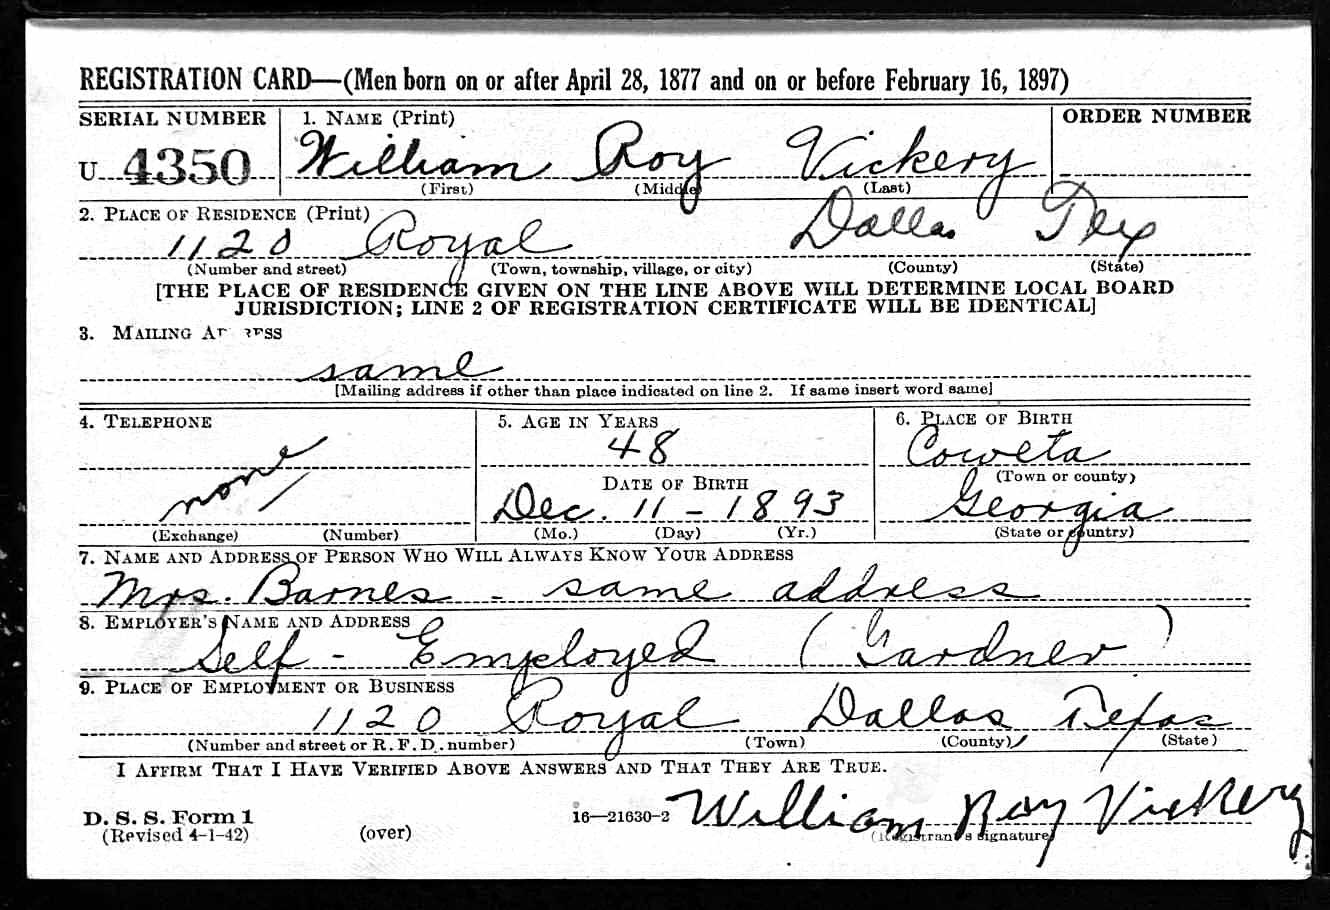 REGISTRATION CARD—(Men born on or after April 28, 1877 and on or before February 16, 1897)
SERIAL NUMBER 1. NAME (Print) ORDER NUMBER
U 4350 William Roy Vickery
(First) (Middle) (Last)
2. PLACE OF RESIDENCE (Print)
1120 Royal Dallas Tex
(Number and street) (Town, township, village, or city) (County) (State)
[THE PLACE OF RESIDENCE GIVEN ON THE LINE ABOVE WILL DETERMINE LOCAL BOARD
JURISDICTION; LINE 2 OF REGISTRATION CERTIFICATE WILL BE IDENTICAL]
3. MAILING ADDRESS
same
[Mailing address if other than place indicated on line 2. If same insert word same]
4. TELEPHONE 5. AGE IN YEARS 6. PLACE OF BIRTH
none 48 Coweta
DATE OF BIRTH (Town or county)
Dec. 11 - 1893 Georgia
(Exchange) (Number) (Mo.) (Day) (Yr.) (State or country)
7. NAME AND ADDRESS OF PERSON WHO WILL ALWAYS KNOW YOUR ADDRESS
Mrs. Barnes - same address
8. EMPLOYER'S NAME AND ADDRESS
Self - Employed (Gardner)
9. PLACE OF EMPLOYMENT OR BUSINESS
1120 Royal Dallas Texas
(Number and street or R. F. D. number) (Town) (County) (State)
I AFFIRM THAT I HAVE VERIFIED ABOVE ANSWERS AND THAT THEY ARE TRUE.
D. S. S. Form 1 16—21630-2 William Roy Vickery
(Revised 4-1-42) (over) (Registrant's signature)